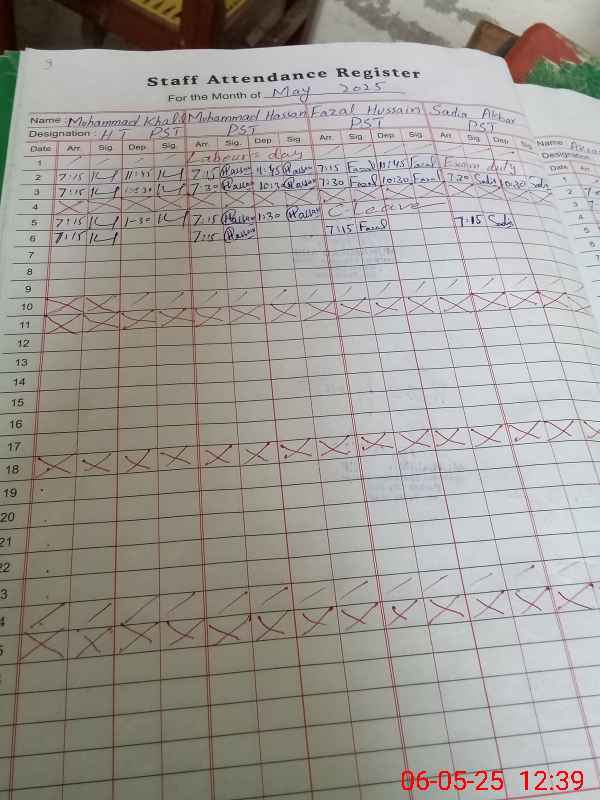 Staff Attendance Register
For the Month of May 2025
Name : Mohammad Khalil Mohammad Hassan Fazal Hussain Sadia Akbar Name :
Designation : HT PST PST PST PST Designation
Date Arr. Sig. Dep. Sig. Arr. Sig. Dep. Sig. Arr. Sig. Dep. Sig. Arr. Sig. Dep. Sig. Date Arr
1 Labour's day 1
2 7:15 11:45 7:15 Hassan 11:45 Hassan 7:15 Fazal 11:45 Fazal Exam duty 2
3 7:15 7:30 Hassan 10:30 Hassan 7:30 Fazal 10:30 Fazal 7:30 Sadia 10:30 Sadia 3
5 7:15 1-30 7:15 Hassan 1:30 Hassan C-leave 7:15 Sadia
6 7:15 7:15 Hassan 7:15 Fazal
7
8
9
10
11
12
13
14
15
16
17
18
19
20
21
22
3
4
5
06-05-25 12:39